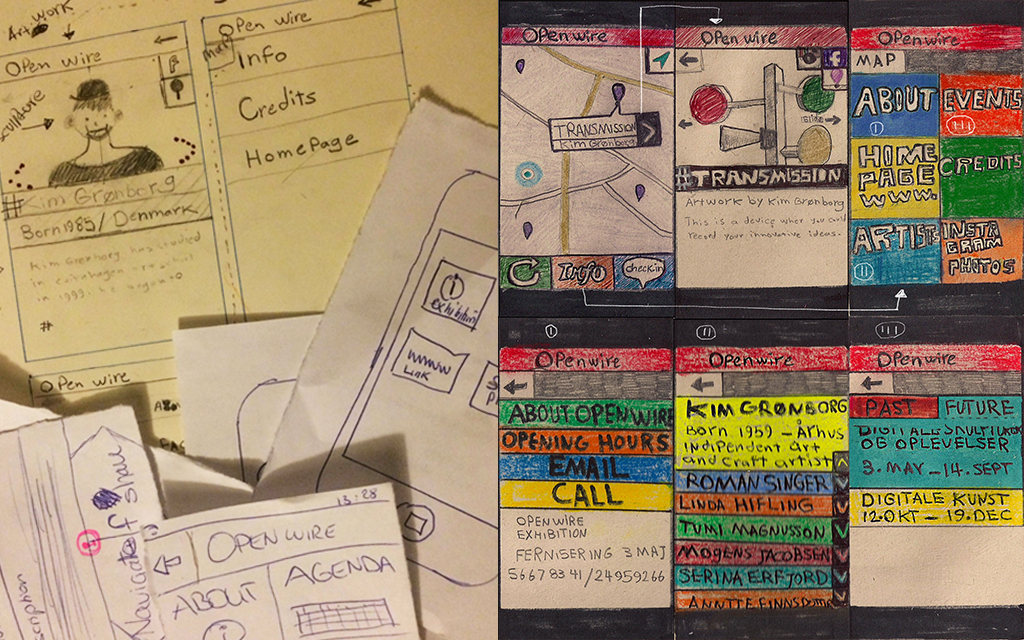 Art work
Open wire
Kim Grønborg
Born 1985/Denmark
Kim Grønborg has studied
in 1999. he began to
#
Open wire
Map
Info
Credits
HomePage
Open wire
exhibition
WWWW
LINK
Navigate
13:28
OPENWIRE
ABOUT
AGENDA
Open wire
TRANSMISSION
Kim Grønborg
C
Info
check in
Open wire
slide
#TRANSMISSION
Artwork by Kim Grønborg
This is a device wher you could
record your innovative ideas.
Open wire
MAP
ABOUT
I
EVENTS
III
HOME
PAGE
WWW.
CREDITS
ARTISTS
II
INSTA
GRAM
PHOTOS
I
Open wire
ABOUT OPENWIRE
OPENING HOURS
EMAIL
CALL
OPENWIRE
EXHIBITION
FERNISERING 3 MAJ
56678341/24959266
II
Open wire
KIM GRØNBORG
Born 1959 - Århus
Indipendent art
and craft artist
ROMAN SINGER
LINDA HIFLING
TUMI MAGNUSSON
MOGENS JACOBSEN
SERINA ERFJORD
III
Open wire
PAST
FUTURE
DIGITALE SKULTURER
OG OPLEVELSER
3. MAY - 14. SEPT
DIGITALE KUNST
12.OKT - 19.DEC